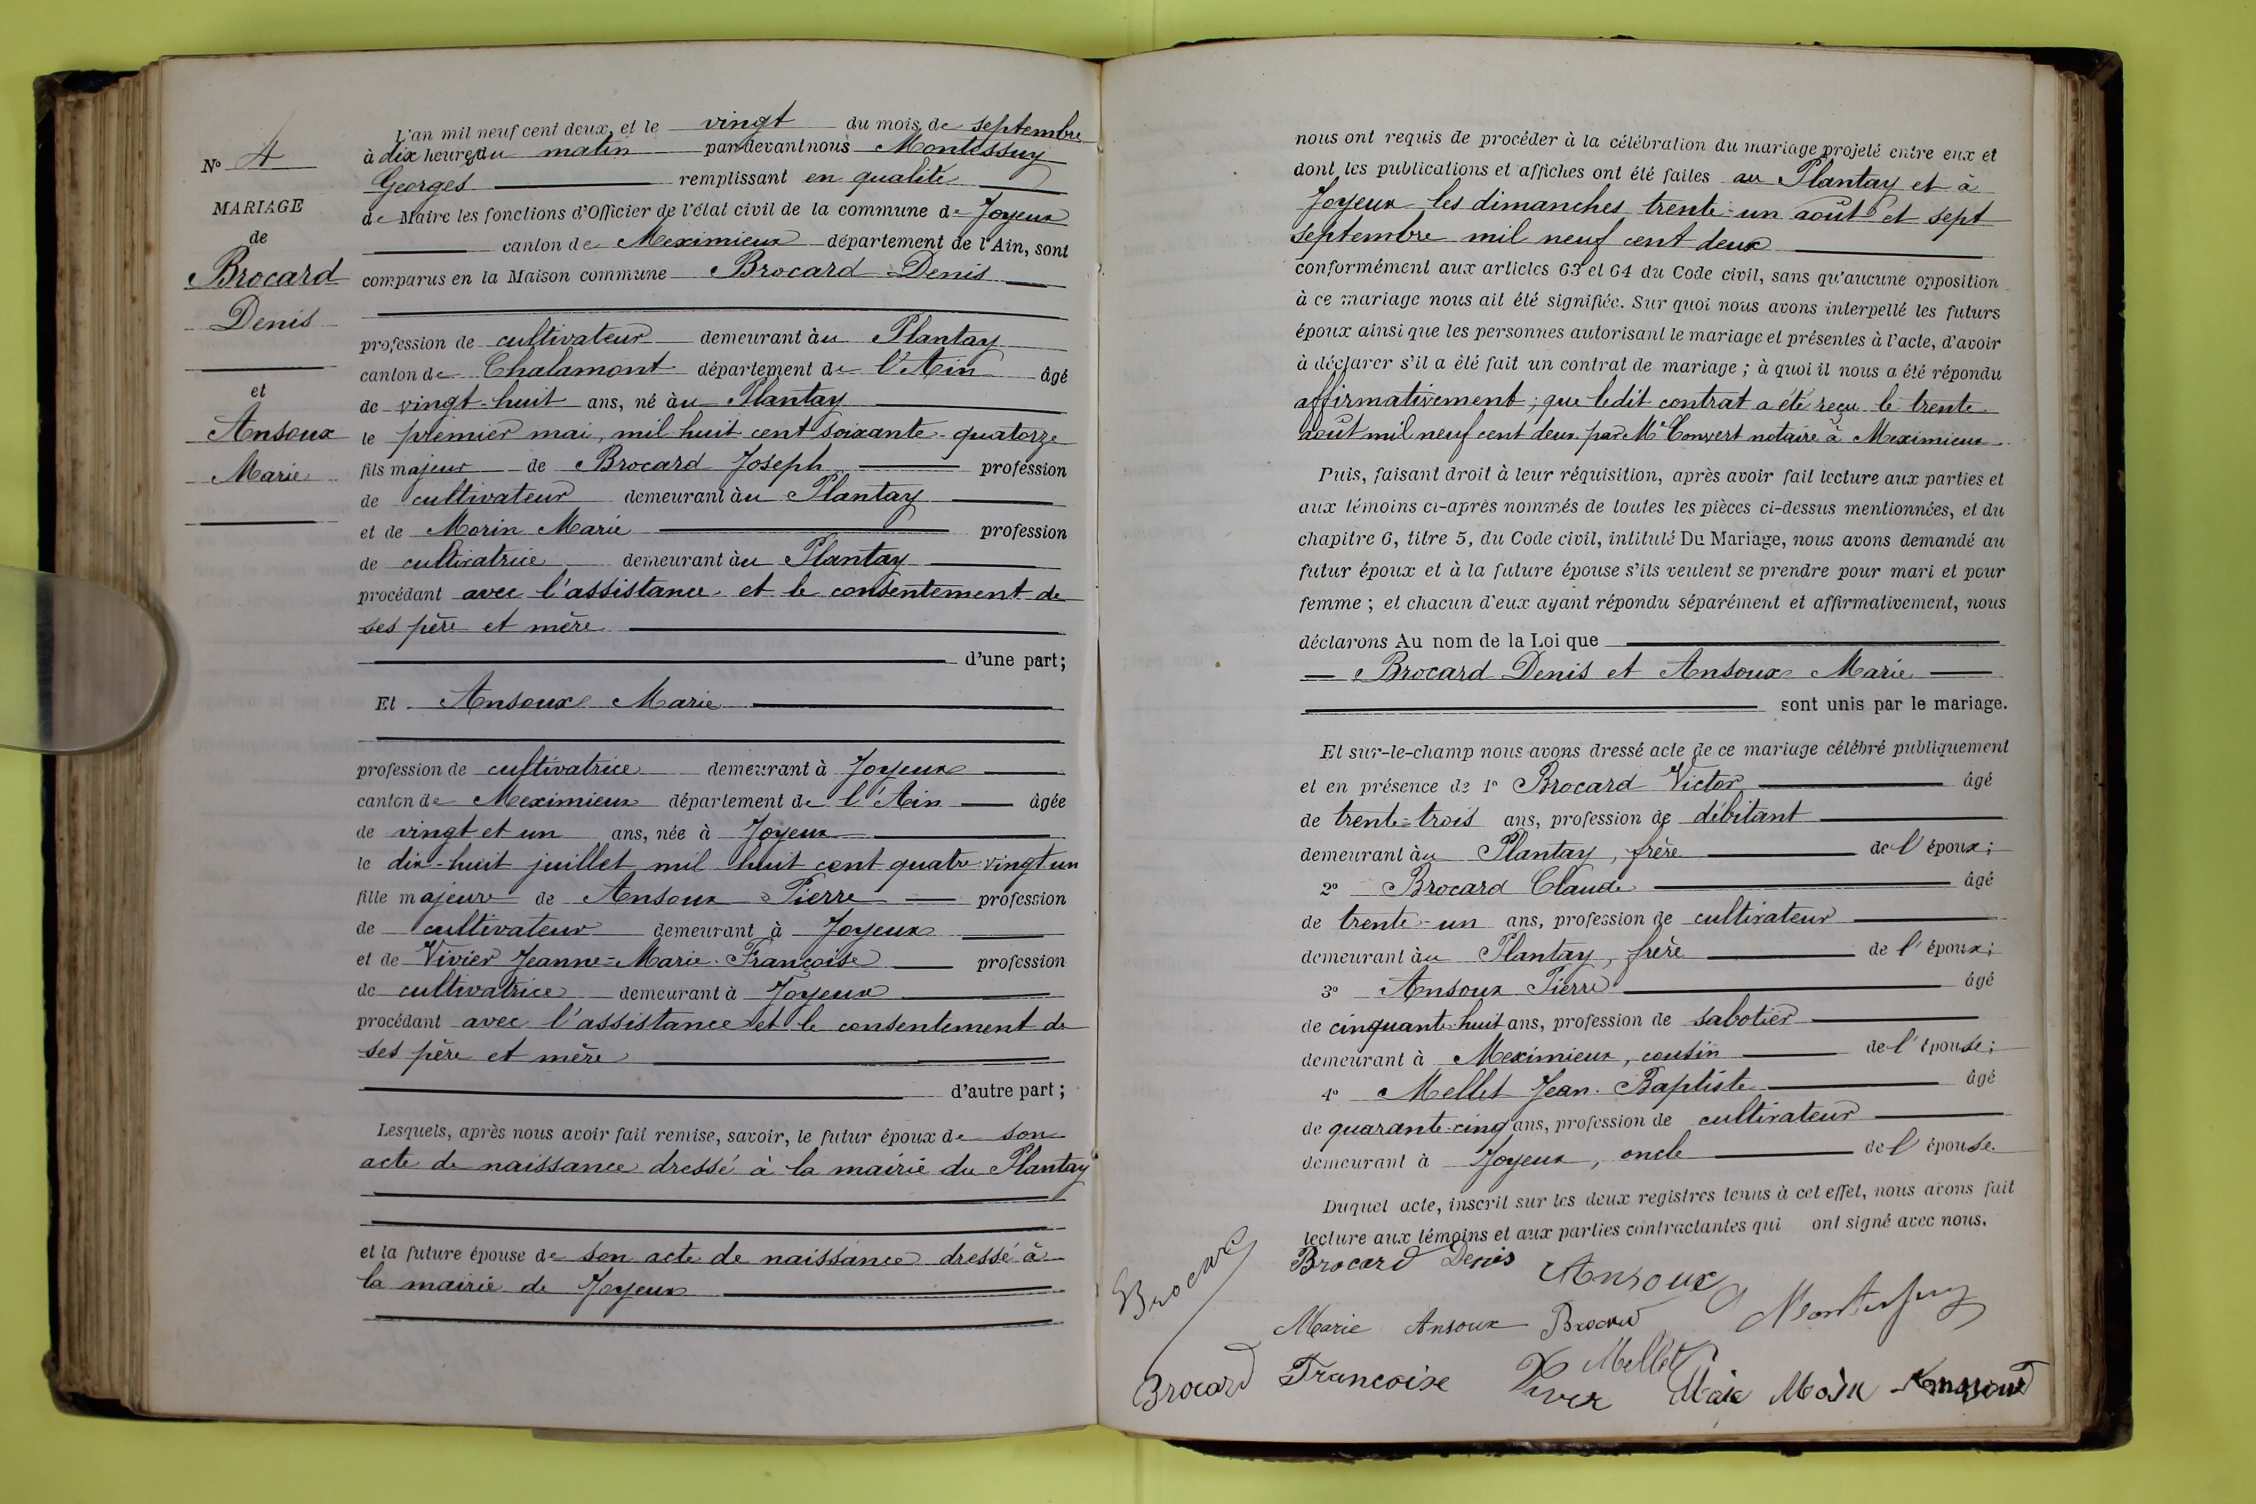 N° 4
MARIAGE
de
Brocard
Denis
et
Ansoux
Marie
L'an mil neuf cent deux, et le vingt du mois de septembre
à dix heures du matin par devant nous Montessuy
Georges remplissant en qualité
de Maire les fonctions d'Officier de l'état civil de la commune de Joyeux
canton de Meximieux département de l'Ain, sont
comparus en la Maison commune Brocard Denis
profession de cultivateur demeurant au Plantay
canton de Chalamont département de l'Ain âgé
de vingt-huit ans, né au Plantay
le premier mai, mil huit cent soixante-quatorze
fils majeur de Brocard Joseph profession
de cultivateur demeurant au Plantay
et de Morin Marie profession
de cultivatrice demeurant au Plantay
procédant avec l'assistance et le consentement de
ses père et mère
d'une part;
Et Ansoux Marie
profession de cultivatrice demeurant à Joyeux
canton de Meximieux département de l'Ain âgée
de vingt et un ans, née à Joyeux
le dix-huit juillet mil huit cent quatre-vingt un
fille majeure de Ansoux Pierre profession
de cultivateur demeurant à Joyeux
et de Vivier Jeanne-Marie-Françoise profession
de cultivatrice demeurant à Joyeux
procédant avec l'assistance et le consentement de
ses père et mère
d'autre part;
Lesquels, après nous avoir fait remise, savoir, le futur époux de son
acte de naissance dressé à la mairie du Plantay
et la future épouse de son acte de naissance dressé à
la mairie de Joyeux
nous ont requis de procéder à la célébration du mariage projeté entre eux et
dont les publications et affiches ont été faites au Plantay et à
Joyeux les dimanches trente-un août et sept
septembre mil neuf cent deux
conformément aux articles 63 et 64 du Code civil, sans qu'aucune opposition
à ce mariage nous ait été signifiée. Sur quoi nous avons interpellé les futurs
époux ainsi que les personnes autorisant le mariage et présentes à l'acte, d'avoir
à déclarer s'il a été fait un contrat de mariage; à quoi il nous a été répondu
affirmativement; que ledit contrat a été reçu le trente
août mil neuf cent deux par Me Convert notaire à Meximieux
Puis, faisant droit à leur réquisition, après avoir fait lecture aux parties et
aux témoins ci-après nommés de toutes les pièces ci-dessus mentionnées, et du
chapitre 6, titre 5, du Code civil, intitulé Du Mariage, nous avons demandé au
futur époux et à la future épouse s'ils veulent se prendre pour mari et pour
femme; et chacun d'eux ayant répondu séparément et affirmativement, nous
déclarons Au nom de la Loi que
Brocard Denis et Ansoux Marie
sont unis par le mariage.
Et sur-le-champ nous avons dressé acte de ce mariage célébré publiquement
et en présence de 1° Brocard Victor âgé
de trente-trois ans, profession de débitant
demeurant au Plantay, frère de l'époux;
2° Brocard Claude âgé
de trente-un ans, profession de cultivateur
demeurant au Plantay, frère de l'époux;
3° Ansoux Pierre âgé
de cinquante-huit ans, profession de sabotier
demeurant à Meximieux, cousin de l'épouse;
4° Mellet Jean-Baptiste âgé
de quarante-cinq ans, profession de cultivateur
demeurant à Joyeux, oncle de l'épouse.
Duquel acte, inscrit sur les deux registres tenus à cet effet, nous avons fait
lecture aux témoins et aux parties contractantes qui ont signé avec nous.
Brocard Brocard Denis Ansoux
Marie Ansoux Brocard Montessuy
Brocard Francoise Vivier Mellet